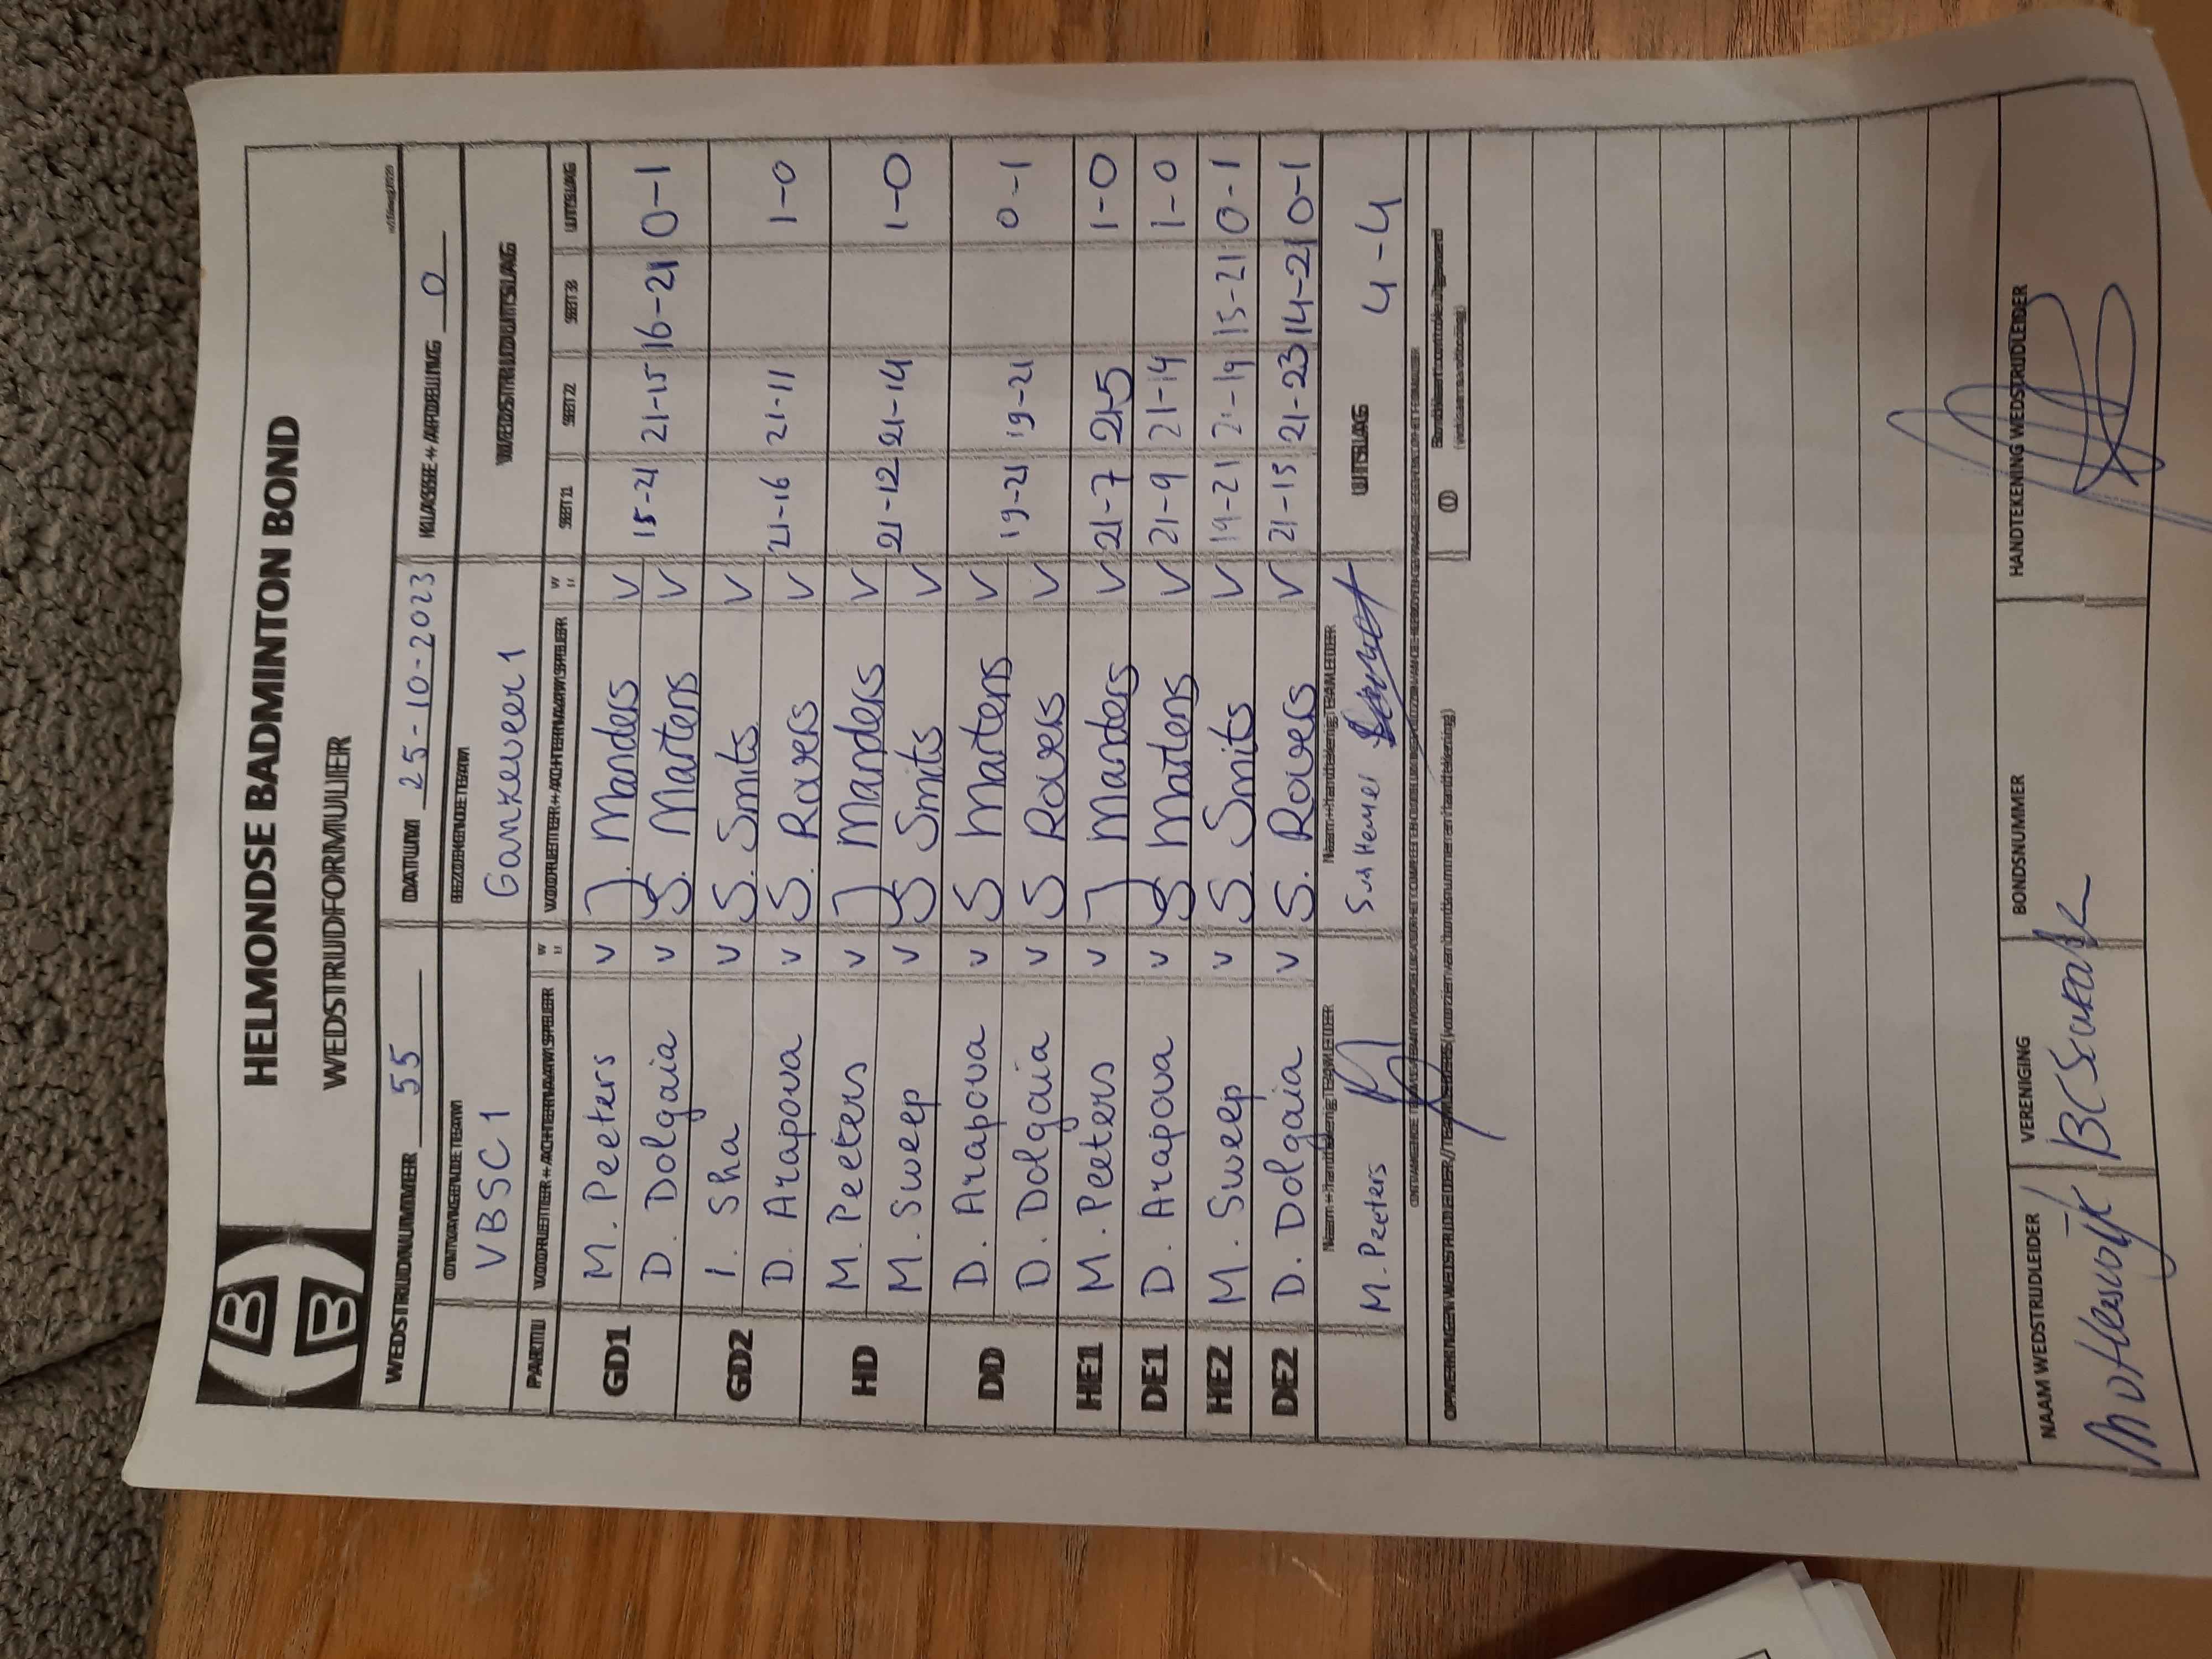 HELMONDSE BADMINTON BOND
WEDSTRIJDFORMULIER
WEDSTRIJDNUMMER 55 DATUM 25-10-2023 KLASSE + AFDELING 0
ONTVANGENDE TEAM BEZOEKENDE TEAM WEDSTRIJDUITSLAG
VBSC 1 Ganzeveer 1
PARTIJ VOORLETTER + ACHTERNAAM SPELER VOORLETTER + ACHTERNAAM SPELER SET 1 SET 2 SET 3 UITSLAG
GD1 M. Peeters v J. Manders v 15-21 21-15 16-21 0-1
D. Dolgaia v S. Martens v
GD2 I. Sha v S. Smits v 21-16 21-11 1-0
D. Arapova v S. Rovers v
HD M. Peeters v J Manders v 21-12 21-14 1-0
M. Sweep v S Smits v
DD D. Arapova v S Martens v 19-21 19-21 0-1
D. Dolgaia v S Rovers v
HE1 M. Peeters v J Manders v 21-7 21-5 1-0
DE1 D. Arapova v S Martens v 21-9 21-14 1-0
HE2 M. Sweep v S. Smits v 19-21 21-19 15-21 0-1
DE2 D. Dolgaia v S. Rovers v 21-15 21-23 14-21 0-1
Naam + handtekening TEAMLEIDER Naam + handtekening TEAMLEIDER UITSLAG 4-4
M. Peeters
OPMERKINGEN WEDSTRIJDLEIDER / TEAMLEIDERS (voorzien van bondsnummer en handtekening)
NAAM WEDSTRIJDLEIDER VERENIGING BONDSNUMMER HANDTEKENING WEDSTRIJDLEIDER